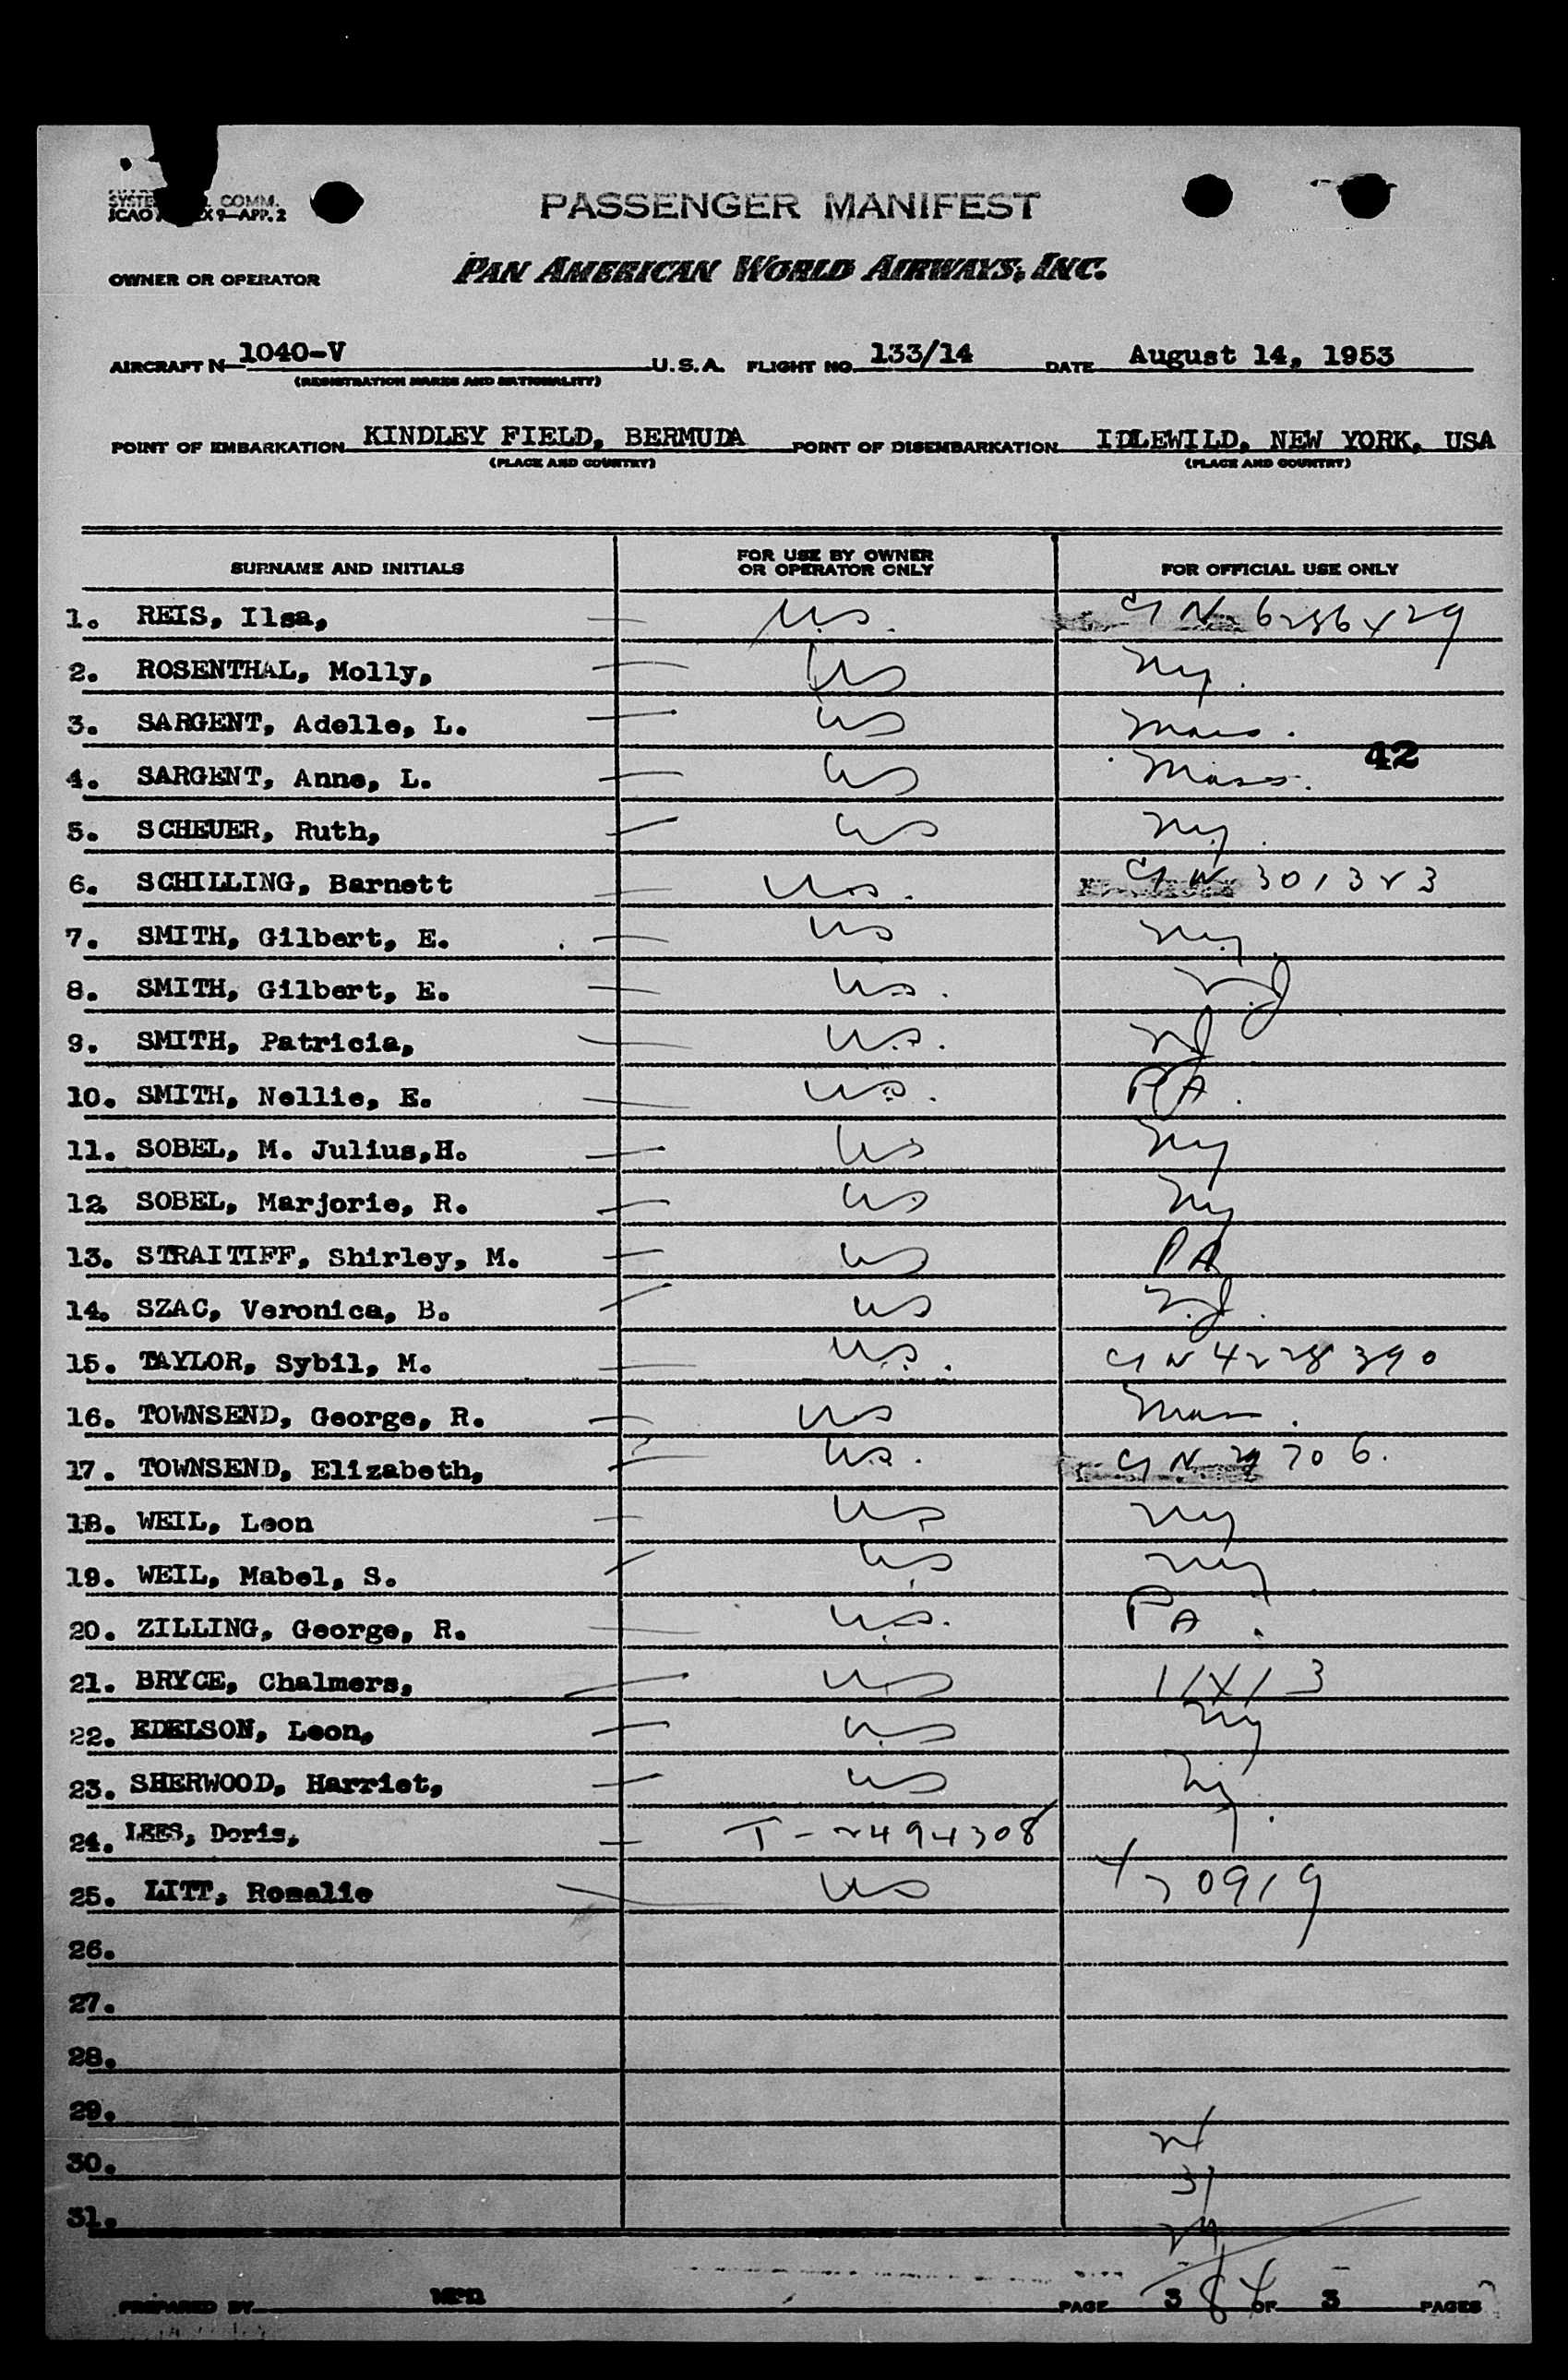 SYSTE COMM.
ICAO X 9—APP. 2
PASSENGER MANIFEST
OWNER OR OPERATOR PAN AMERICAN WORLD AIRWAYS, INC.
AIRCRAFT N 1040-V U.S.A. FLIGHT NO. 133/14 DATE August 14, 1953
(REGISTRATION MARKS AND NATIONALITY)
POINT OF EMBARKATION KINDLEY FIELD, BERMUDA POINT OF DISEMBARKATION IDLEWILD, NEW YORK, USA
(PLACE AND COUNTRY) (PLACE AND COUNTRY)
SURNAME AND INITIALS FOR USE BY OWNER OR OPERATOR ONLY FOR OFFICIAL USE ONLY
1. REIS, Ilsa, U.S.
2. ROSENTHAL, Molly, US NY.
3. SARGENT, Adelle, L. US Mass.
42
4. SARGENT, Anne, L. US Mass.
5. SCHEUER, Ruth, US NY.
6. SCHILLING, Barnett U.S.
7. SMITH, Gilbert, E. US NY.
8. SMITH, Gilbert, E. U.S. NJ
9. SMITH, Patricia, U.S. NJ
10. SMITH, Nellie, E. U.S. PA.
11. SOBEL, M. Julius,H. US NY
12. SOBEL, Marjorie, R. US NY
13. STRAITIFF, Shirley, M. US PA
14. SZAC, Veronica, B. US N.J.
15. TAYLOR, Sybil, M. U.S.
16. TOWNSEND, George, R. US Mass.
17. TOWNSEND, Elizabeth, U.S.
18. WEIL, Leon US NY
19. WEIL, Mabel, S. US NY
20. ZILLING, George, R. U.S. PA.
21. BRYCE, Chalmers, US
22. EDELSON, Leon, US NY
23. SHERWOOD, Harriet, US NY.
24. LEES, Doris, T-2494308
25. LITT, Rosalie US
26.
27.
28.
29.
30.
31.
PREPARED BY PAGE 3 OF 3 PAGES